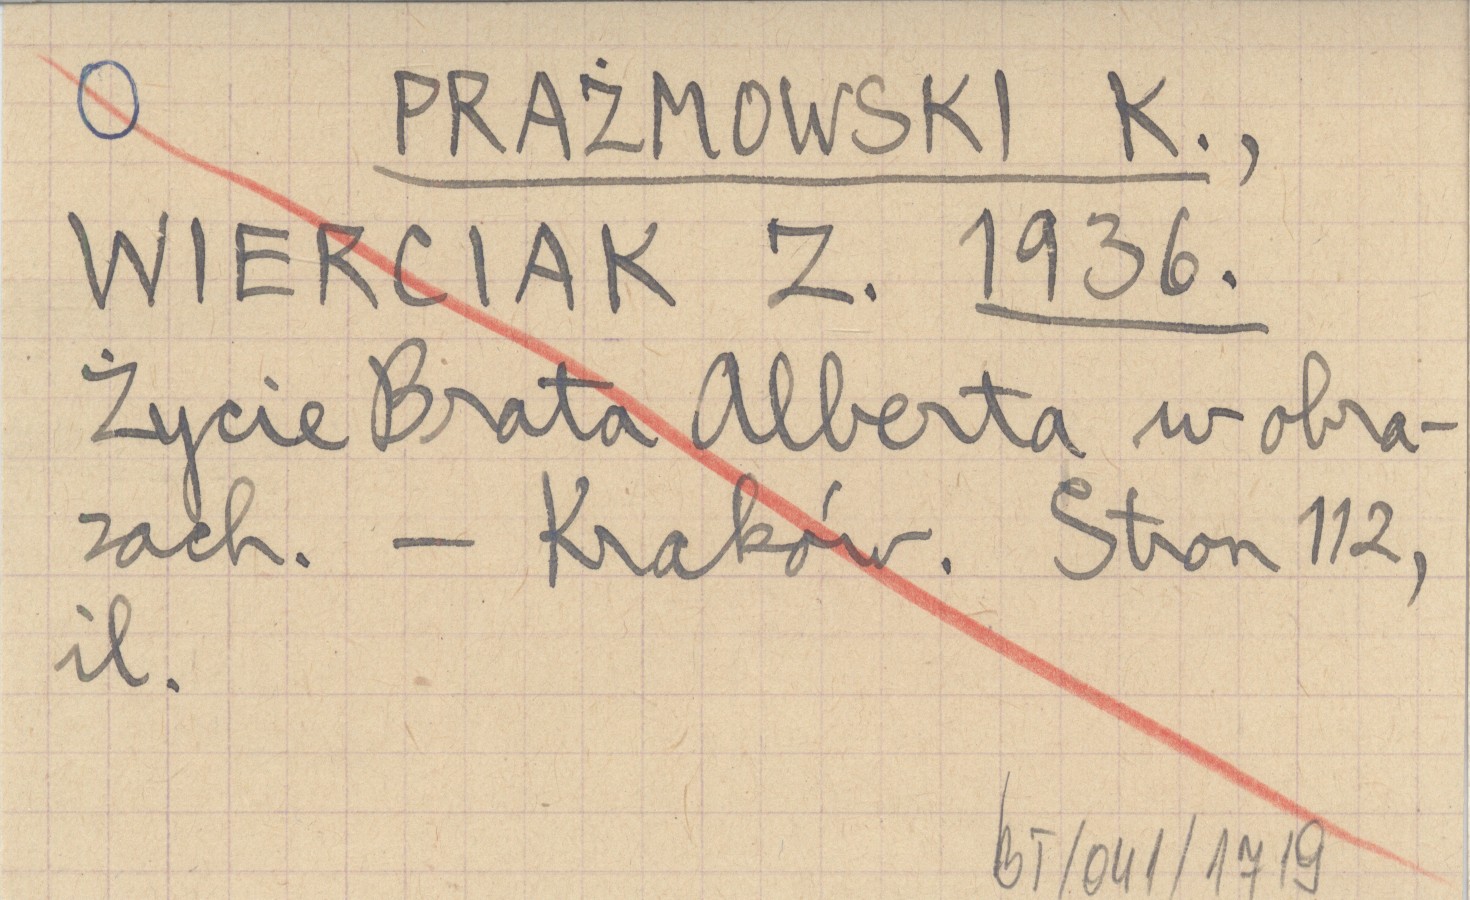 O PRAŻMOWSKI K.,
WIERCIAK Z. 1936.
Życie Brata Alberta w obra-
zach. — Kraków. Stron 112,
il.
BT/041/1719